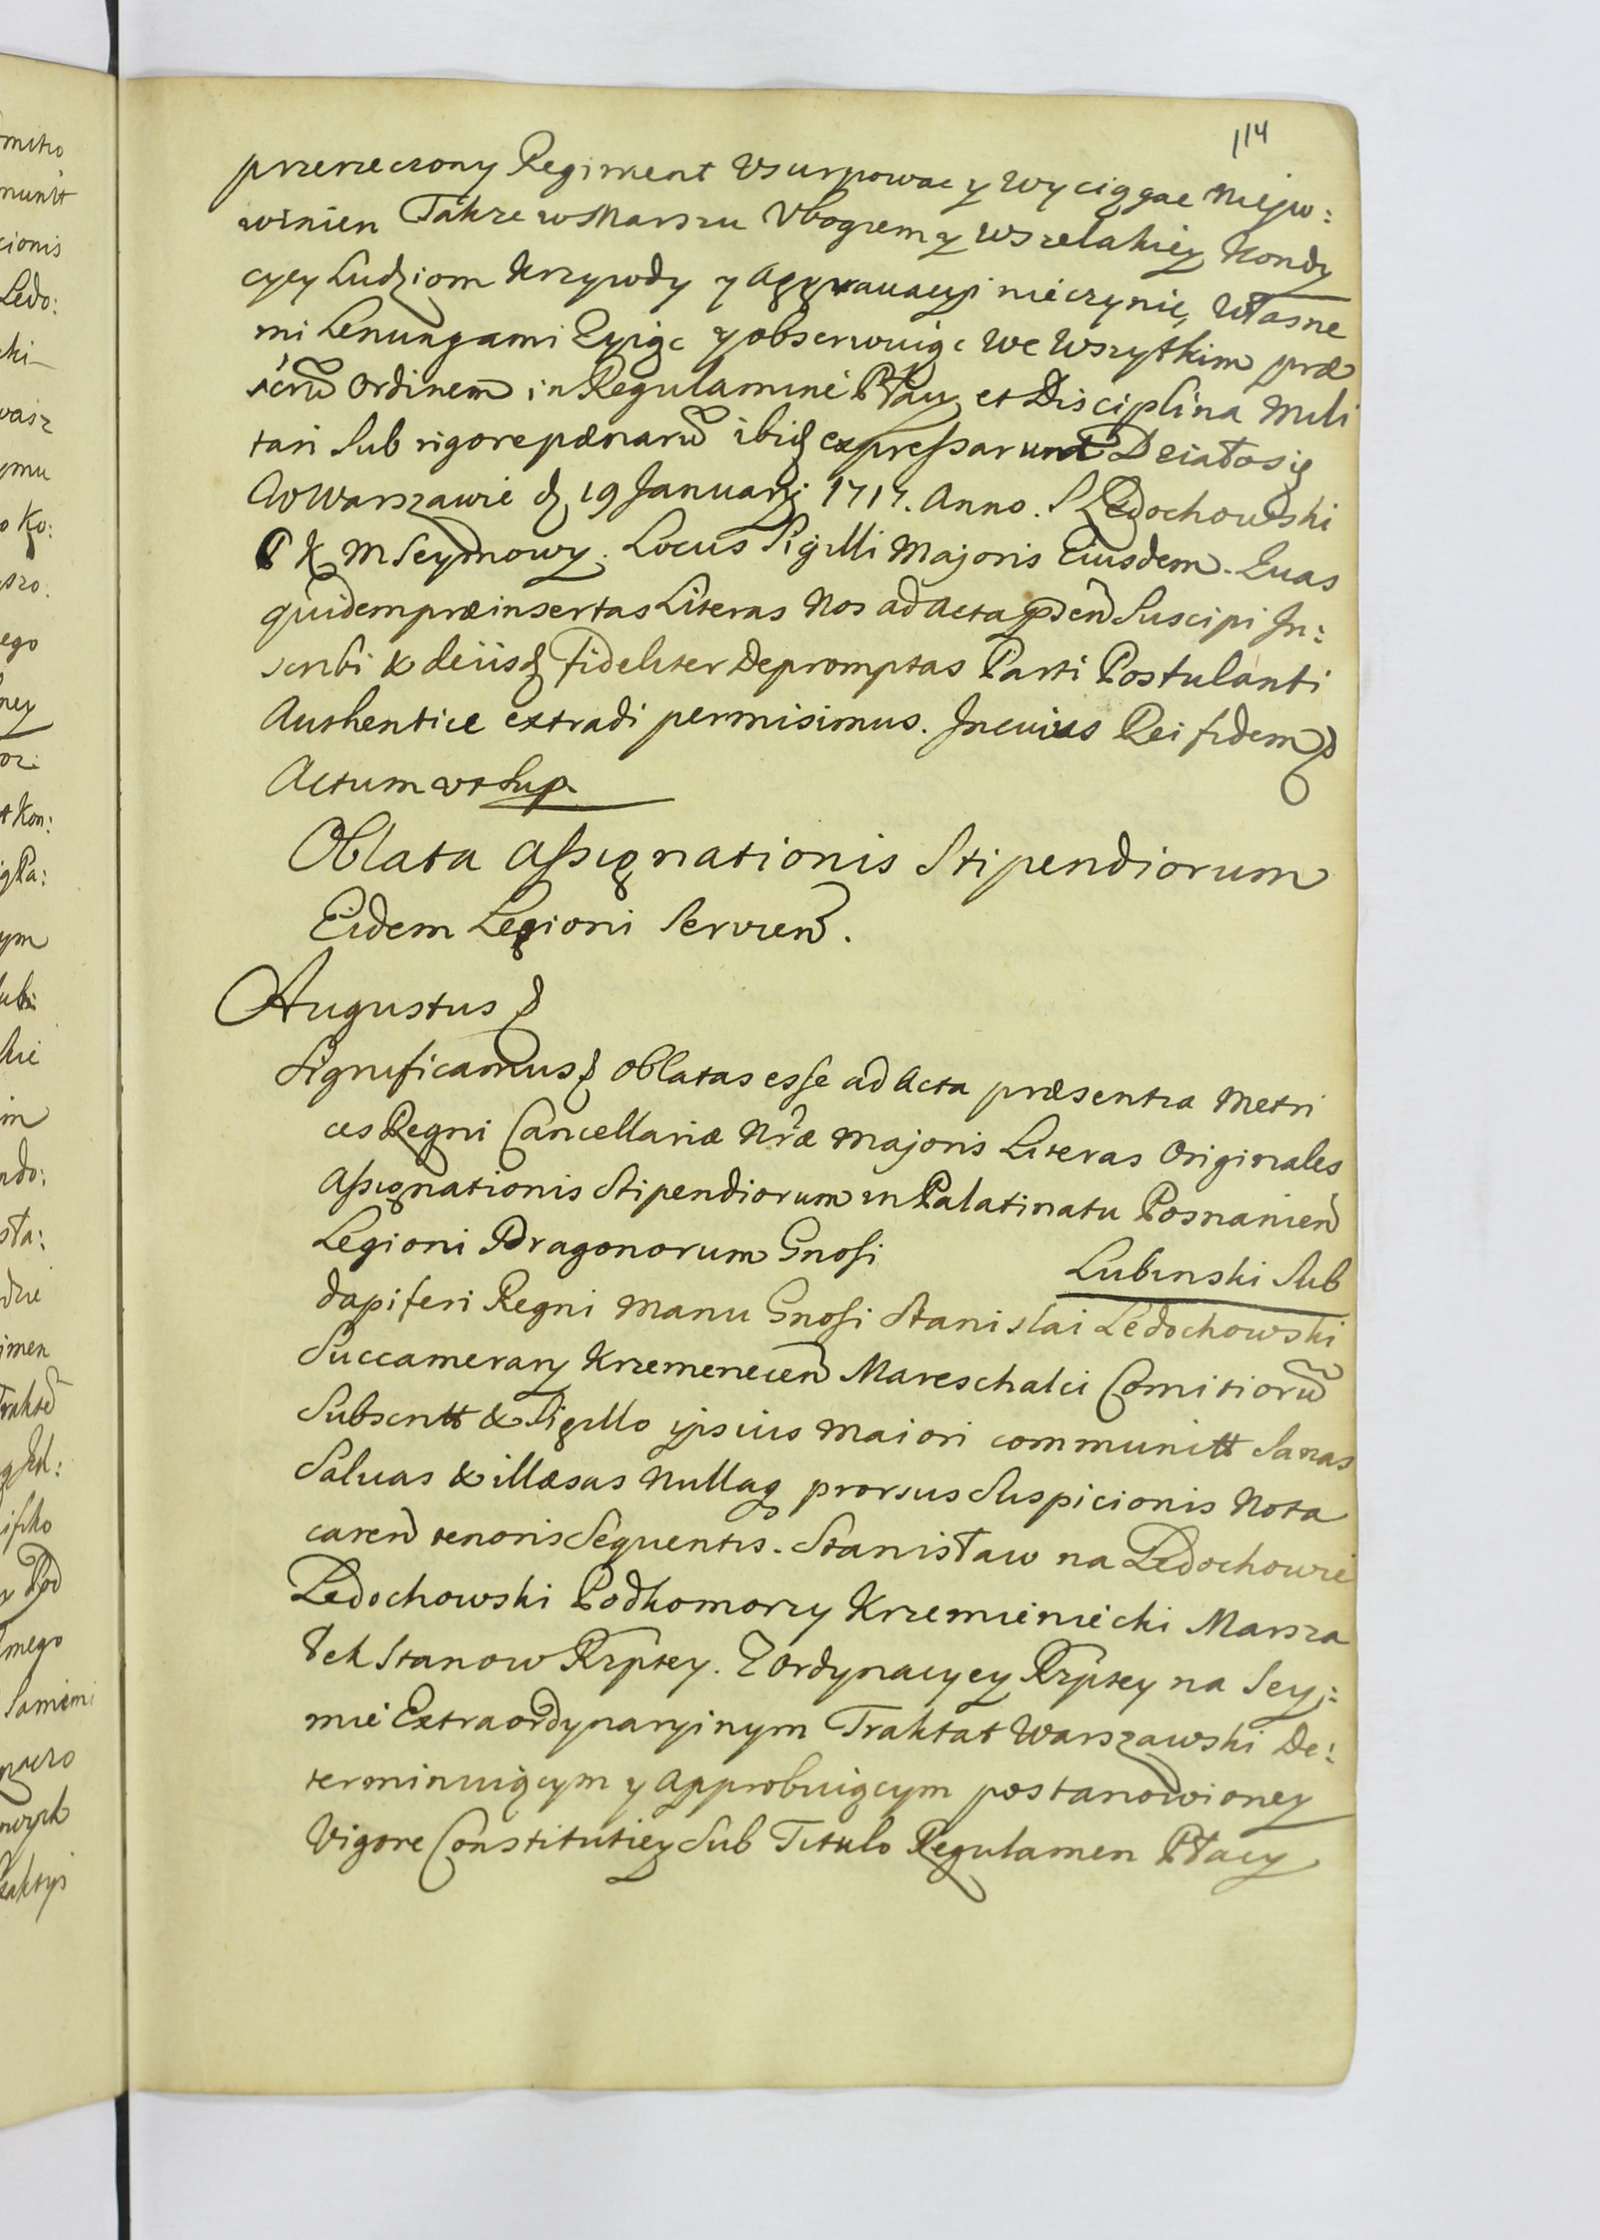 114
przerzeczony Regiment Vsurpowac y wyciągac niepo:
winien Takze w Marszu Vbogiem y wszelakiey Kondy
cyey Ludziom Krzywdy y Aggrauacyi nieczynić, własne
mi Lenungami Zyiąc y obserwuiąc we wszytkim præ
scrũ Ordinem in Regulamine Płacy et Disciplina Mili
tari Sub rigore pænarũ ibiđ expressarum Działosię
w Warszawie d 19 Januarij 1717. Anno. S Ledochowski
P K M Seymowy. Locus Sigilli Majoris Eiusdem. Quas
quidem præinsertas Literas Nos ad Acta pñ Suscipi In:
scribi & de iisđ fideliter Depromptas Parti Postulanti
Authentice extradi permisimus. In cuius Rei fidem &
Actum vt Sup.
Oblata Assignationis Stipendiorum
Eidem Legioni Servien.
Augustus &
Significamus & oblatas esse ad Acta præsentia Metri
ces Regni Cancellariæ Nræ Majoris Literas Originales
Assignationis Stipendiorum in Palatinatu Posnanien
Legioni Dragonorum Gnosi Lubinski Sub
dapiferi Regni manu Gnosi Stanislai Ledochowski
Succamerary Krzemenecen Mareschalci Comitiorũ
Subscritt & Sigillo ipsius maiori communitt Sanas
Saluas & illæsas nullaq prorsus Suspicionis Nota
caren tenoris Sequentis. Stanisław na Ledochowie
Ledochowski Podkomorzy Krzemieniecki Marsza
łek Stanow Rzptey. Z Ordynacyey Rzptey na Sey:
mie Extraordynaryinym Traktat Warszawski De:
terminuiącym y Approbuiącym postanowioney
Vigore Constitutiey Sub Titulo Regulamen Płacy